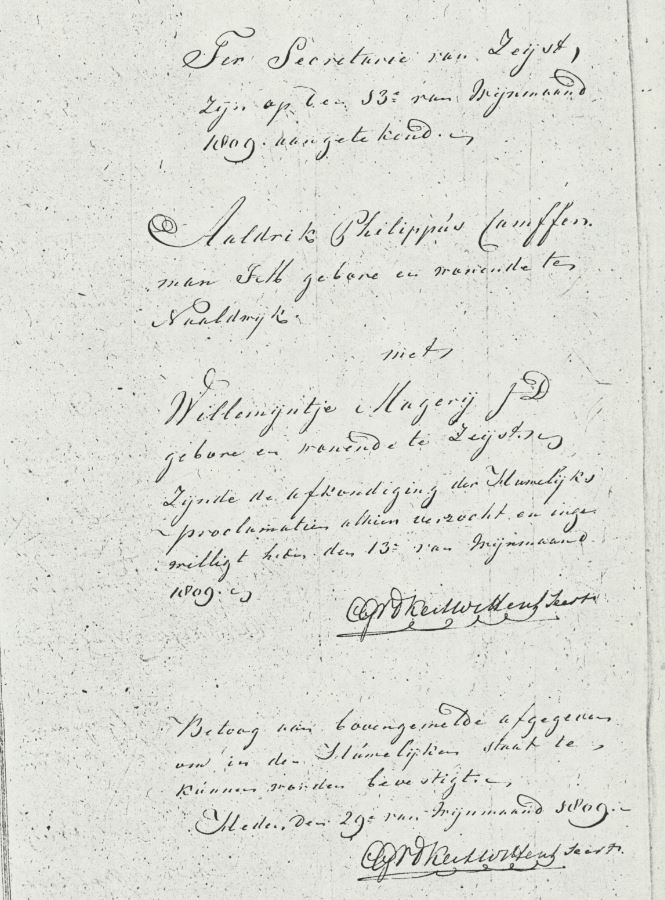 Ter Secretarie van Zeijst,
Zijn op den 13e van Wijnmaand
1809. aangetekend.
Aaldrik Philippus Camffer-
man JM gebore en wonende te
Naaldwijk.
met
Willemijntje Magerij JD
gebore en wonende te Zeijst.
Zijnde de afkondiging der Huwelijks
proclamatien alhier verzocht en inge-
willigt heden den 13e van Wijnmaand
1809.
Secrts
Betoog aan bovengemelde afgegeven
om in den Huwelijken staat te
kunnen worden bevestigt.
Heden den 29e van Wijnmaand 1809.
Secrts.